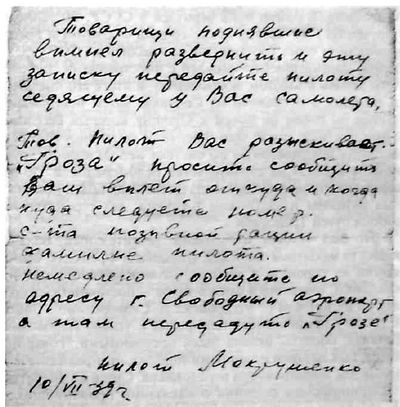 Товарищи поднявшие
вымпел разверните и эту
записку передайте пилоту
седящему у Вас самолета.
Тов. Пилот Вас разыскивает
"Гроза" просит сообщить
Ваш вылет откуда и когда
куда следуете номер.
с-та позывной рации
фамилие пилота.
немедлено сообщите по
адресу г. Свободный аэропорт
а там передадут "Грозе"
пилот Мокрушенко
10/VII-39г.